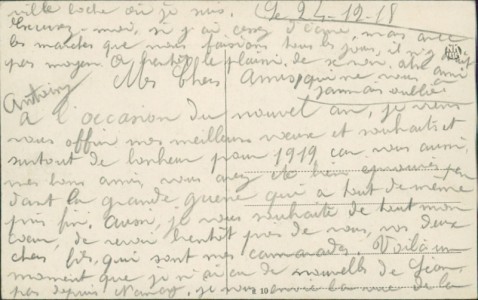 ville boche où je suis. Le 24-12-18
Excusez-moi, si j'ai cessé d'écrire, mais avec
les marches que nous faisions tous les jours, il n'y
pas moyen. le plaisir de se revoir. ami
Mes Chers Amis, qui ne vous a
jamais oublié
Antoine
A l'occasion du nouvel an, je viens
vous offrir mes meilleurs vœux et souhaits et
surtout de bonheur pour 1919 car vous aussi,
mes bons amis, vous avez été bien éprouvés pen
dant la grande guerre qui a tout de même
pris fin. Aussi, je vous souhaite de tout mon
cœur, de revoir bientôt près de vous, vos deux
chers fils, qui sont mes camarades. Voilà un
moment que je n'ai eu de nouvelles de Léon,
pas depuis Nancy, je vous envoie la vue de la
10